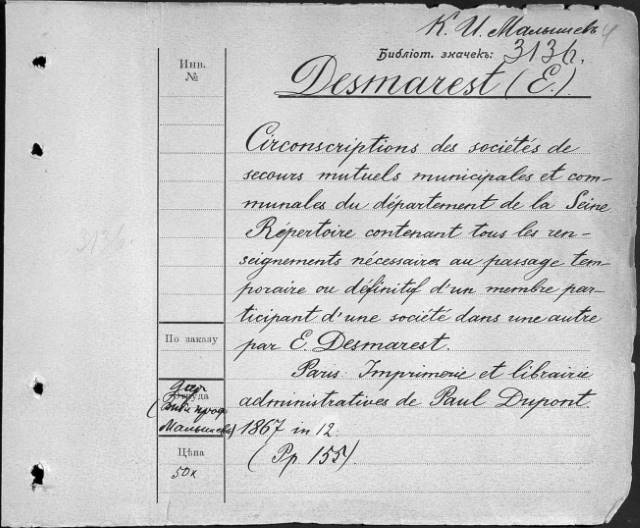 К. И. Малышевъ 4
Библіот. значекъ: 3136.
Инв.
№
Desmarest (E.)
Circonscriptions des sociétés de
secours mutuels municipales et com-
munales du département de la Seine
Répertoire contenant tous les ren-
seignements nécessaires au passage tem-
poraire ou définitif d'un membre par-
ticipant d'une société dans une autre
par E. Desmarest.
Paris. Imprimerie et librairie
administratives de Paul Dupont.
1867 in 12.
(Pp. 155)
3136.
По заказу
Дар
Откуда
(Библ. проф.
Малышева)
Цѣна
50к